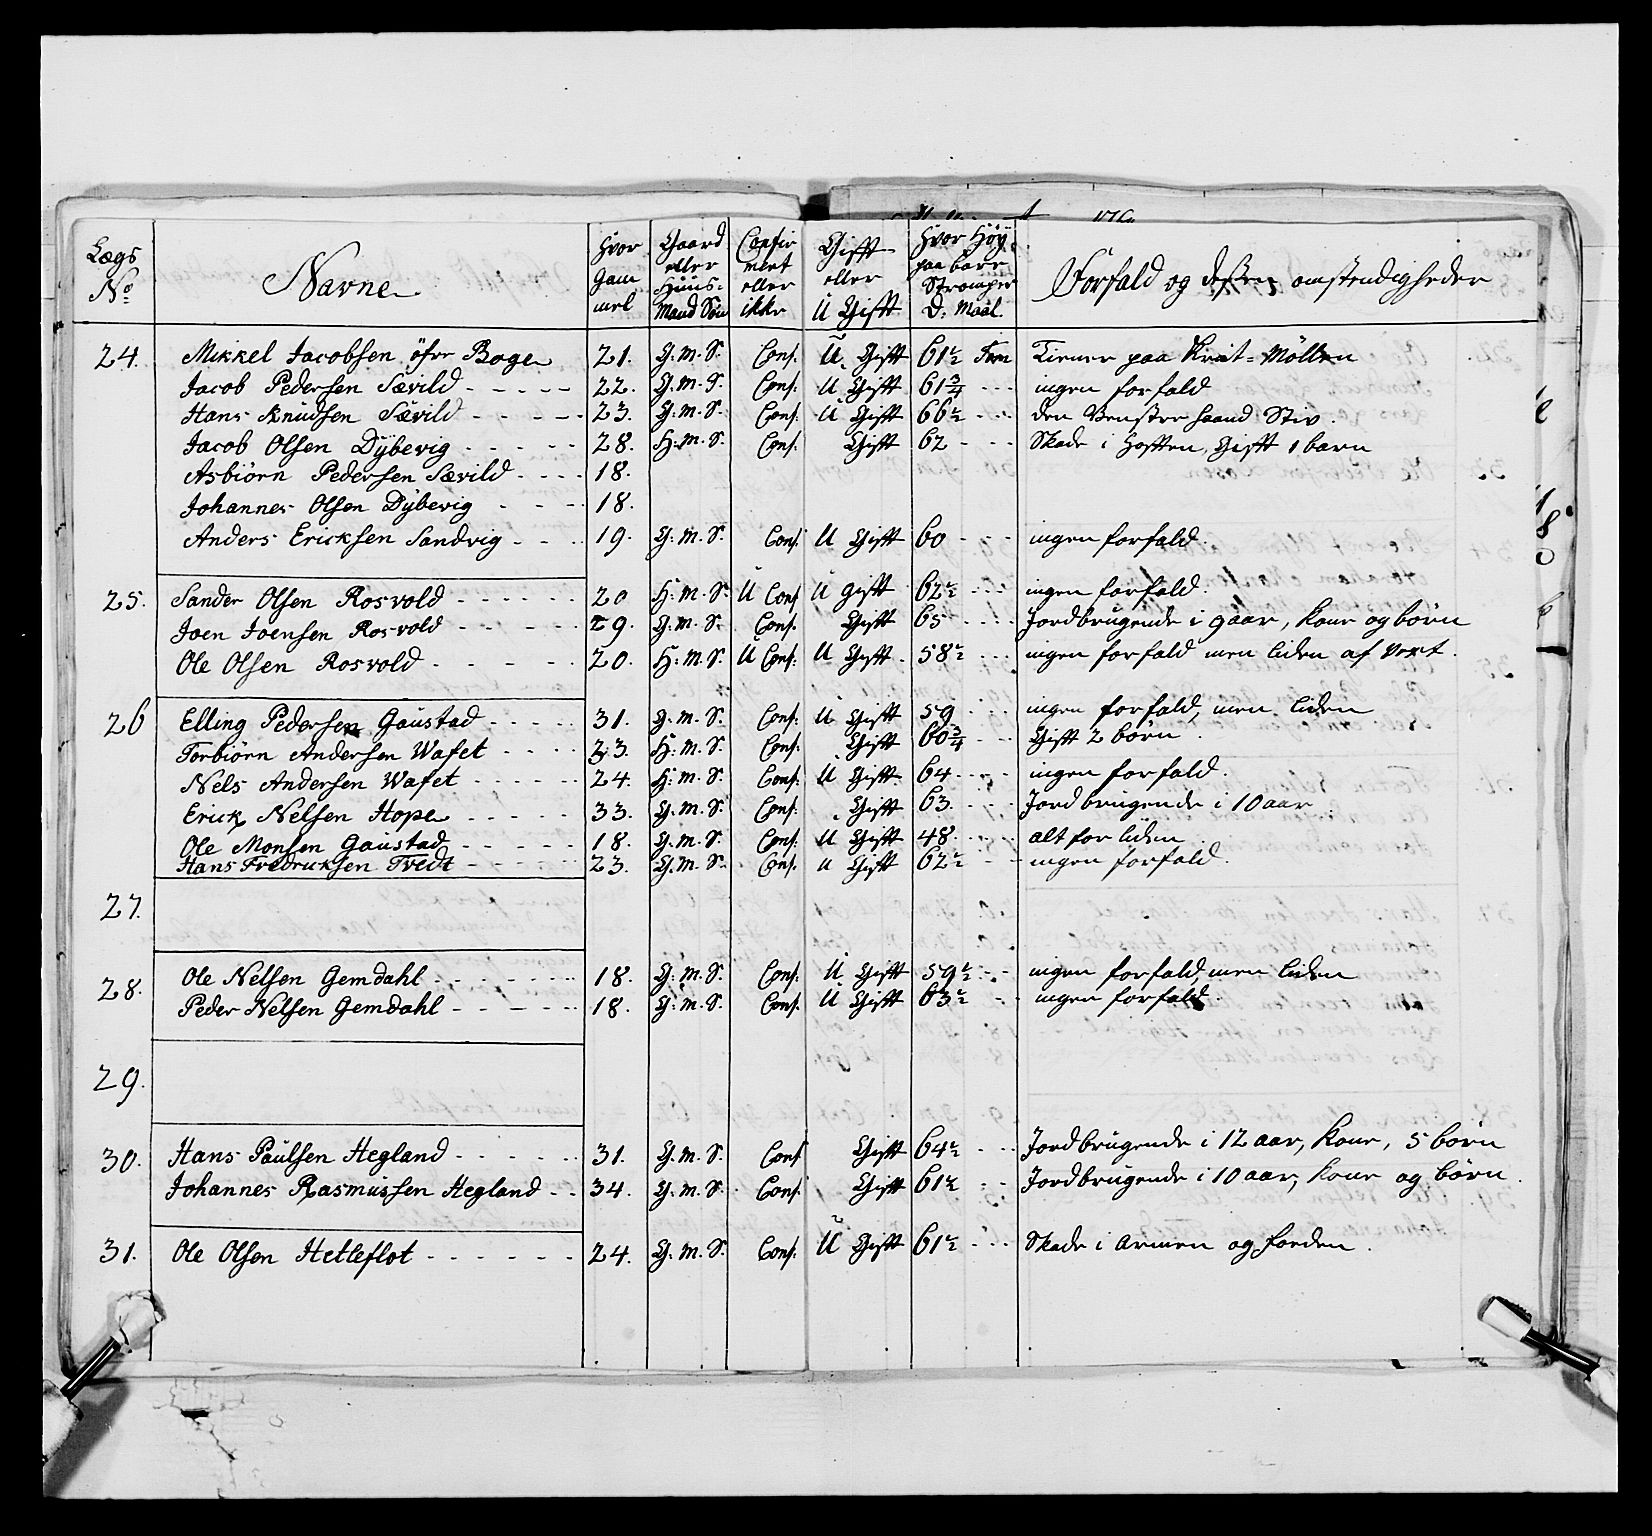 Lægs No | Navne | Hvor Gam mel | Gaard eller Huus- Mand Søn | Confir mert eller ikke | Gifft eller U Gifft | Hvor Høy paa bare Strømper D: Maal. | Forfald og dessen omstendigheder
24. Mikkel Jacobsen öfre Boge 21. G. M. S. Conf. U. Gifft 61½ Tom Tiener paa Krut-Möllen
Jacob Pedersen Sævild - - - - - 22. G. M. S. Conf. U Gifft 61¾ - - - ingen forfald
Hans Knudsen Sævild - - - - - 23. G. M. S. Conf. U Gifft 66½ - - - den Venstre haand Stiv.
Jacob Olsen Dÿbevig - - - - - 28. H: M. S. Conf. Gifft 62 - - - Skade i Hoften, Gifft 1 barn
Asbiörn Pedersen Sævild - - - - 18.
Johannes Olsen Dÿbevig - - - - 18.
Anders Ericksen Sandvig - - - - 19. G. M. S. Conf. U Gifft 60 - - - ingen forfald.
25. Sander Olsen Rosvold - - - - - - 20 H: M. S. U Conf U Gifft 62½ - - - ingen forfald.
Joen Joensen Rosvold - - - - - 29. G. M. S. Conf. Gifft 65 - - - Jordbrugende i 9 aar, Kone og börn
Ole Olsen Rosvold - - - - - - 20. H: M. S. U Conf. U Gifft 58½ - - - ingen forfald men liden af Vext.
26 Elling Pedersen Gaustad - - - - - 31. G. M. S. Conf. U Gifft 59 - - - ingen forfald, men liden
Torbiörn Andersen Wafet - - - - 23. H: M. S. Conf. Gifft 60¾ - - - Gifft 2 börn.
Nels Andersen Wafet - - - - - - 24. H: M. S. Conf. U Gifft 64 - - - - ingen forfald.
Erick Nelsen Hope - - - - - 33. G. M. S. Conf. Gifft 63. - - - Jordbrugende i 10 aar
Ole Monsen Gaustad - - - - - 18. G. M. S. Conf. U Gifft 48. - - - - alt for liden
Hans Fredricksen Tvedt - - - - - 23. G. M. S. Conf. u Gifft 62½ - - - ingen forfald.
27.
28. Ole Nelsen Gemdahl - - - - - - 18. G. M. S. Conf. U Gifft 59½ - - - ingen forfald, men liden
Peder Nelsen Gemdahl - - - - - 18. G. M. S. Conf. U Gifft 63½ - - ingen forfald.
29.
30. Hans Paulsen Hegland - - - - - - 31. G. M. S. Conf Gifft 64½ - - - Jordbrugende i 12 aar, Kone, 5 börn
Johannes Rasmussen Hegland - - 34. G. M. S. Conf. Gifft 61½ - - Jordbrugende i 10 aar, Kone og börn.
31. Ole Olsen Hetleflot - - - - - - 24. G. M. S. Conf. U Gifft 61½ - - - Skade i Armen og foeden.